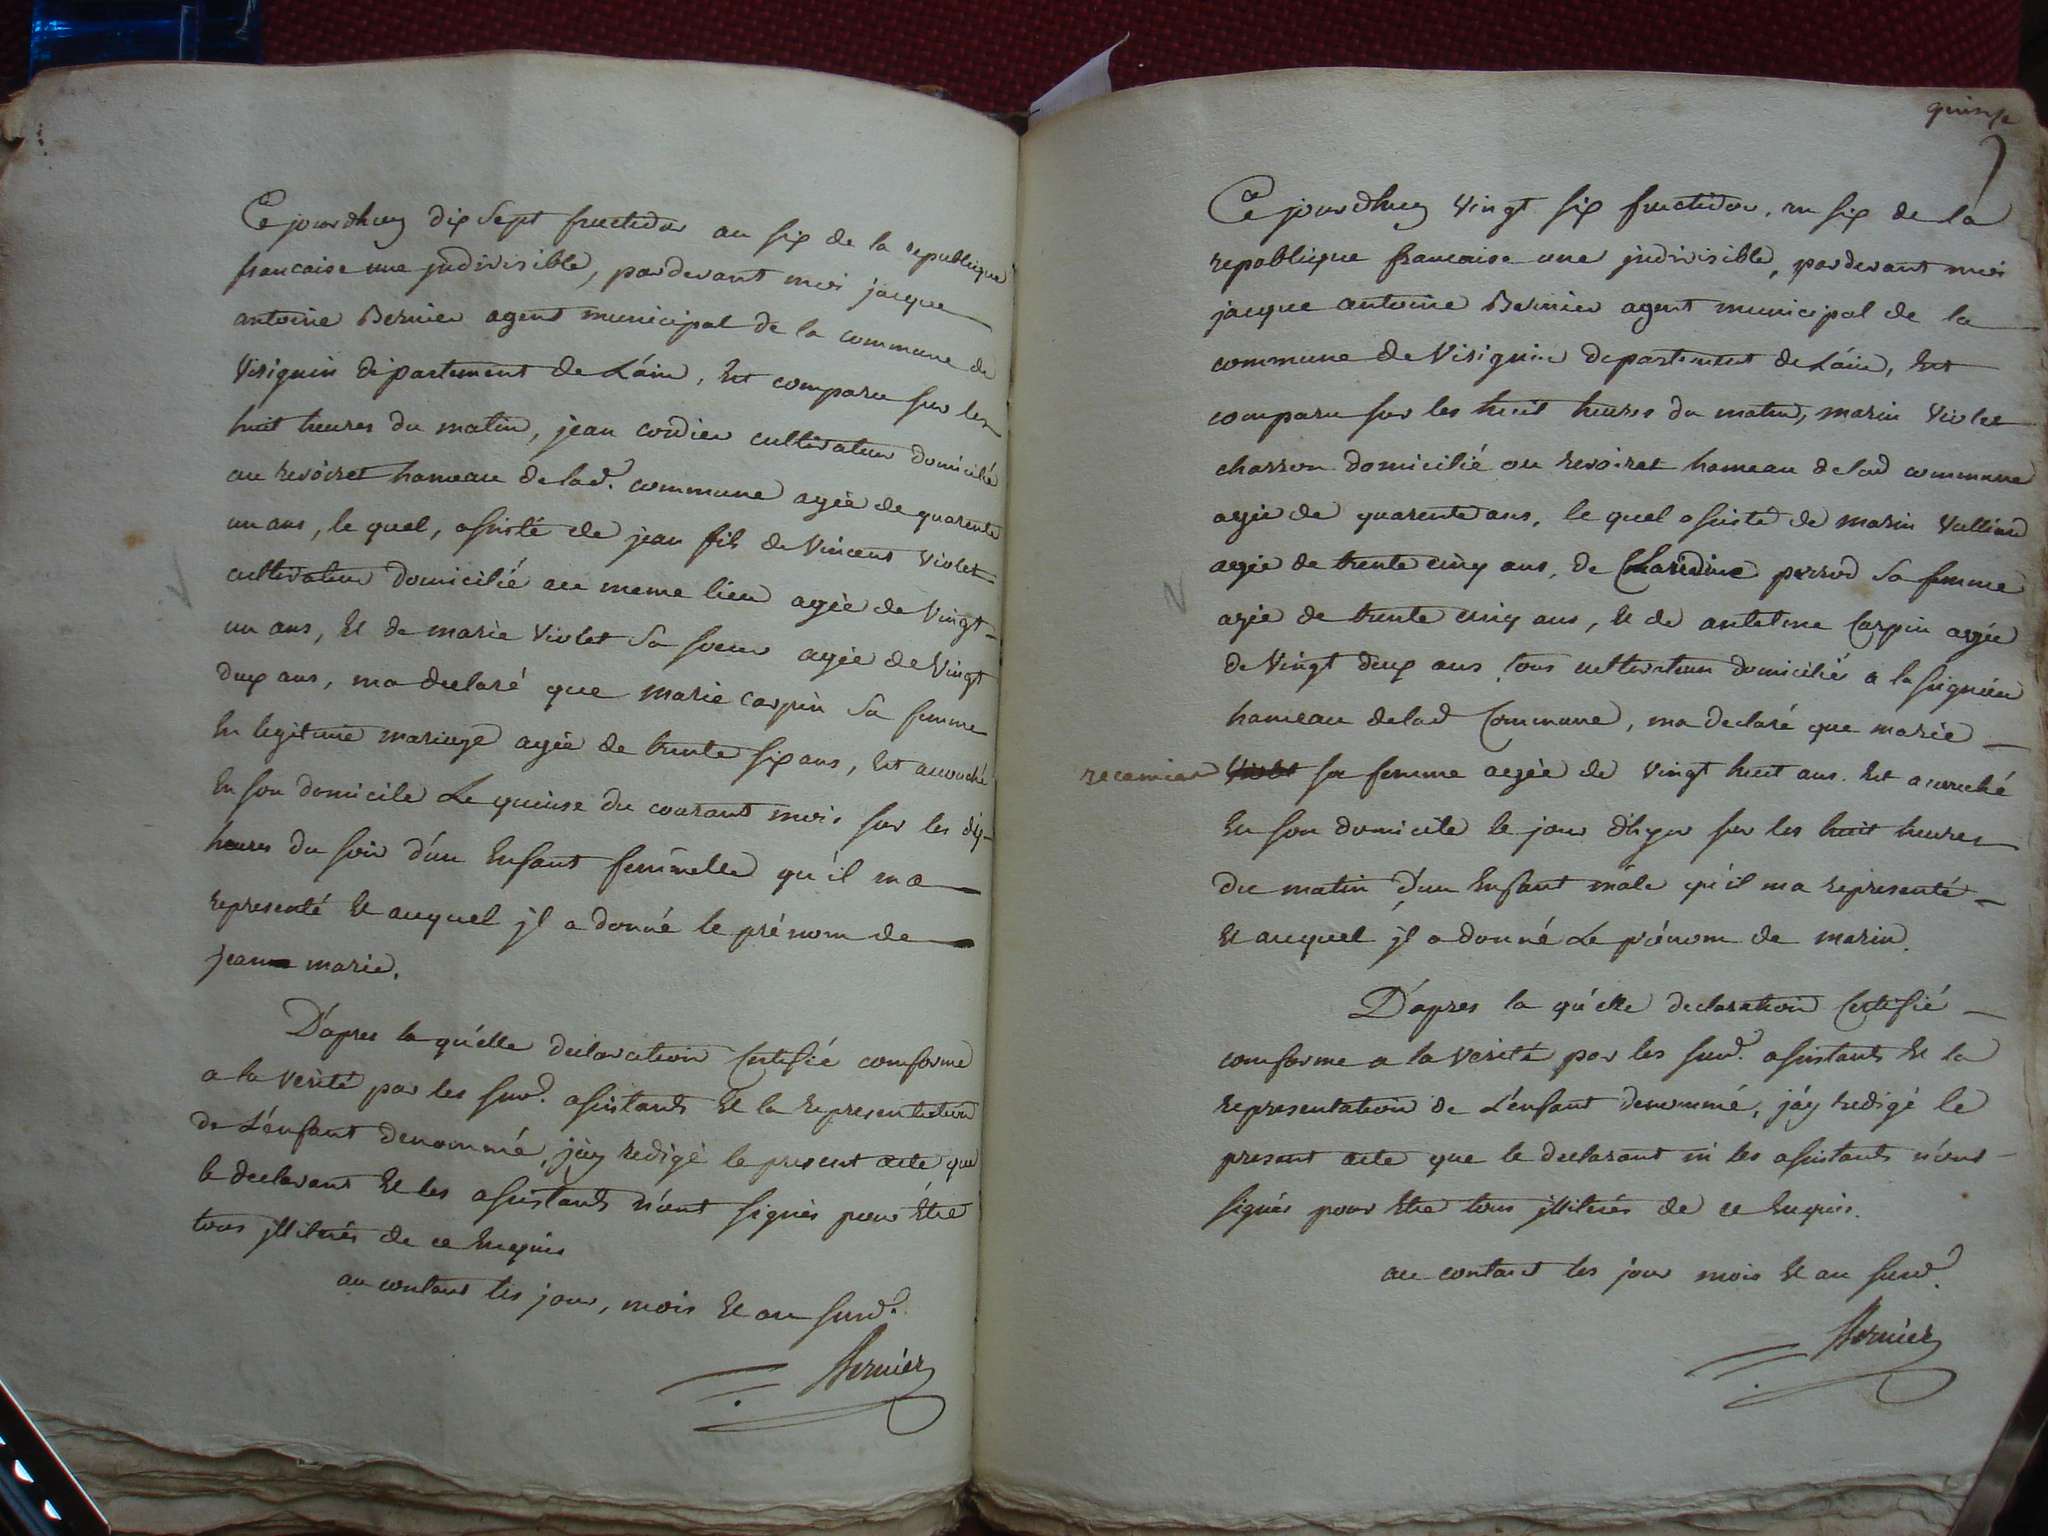 Ce jourdhuy dix Sept fructidor an six de la republique
francaise une jndivisible, pardevant moi jacque
antoine Bernier agent municipal de la commune de
Visignin departement de L'áin, Est comparu sur les
huit heures du matin, jean cordier cultivateur domicilié
au revoiret hameau de lad. commune agée de quarente
un ans, le quel, assisté de jean fils de Vincent Violet
cultivateur domicilié au meme lieu agée de Vingt
un ans, Et de marie Violet Sa soeur agée de Vingt
deux ans, ma declaré que marie carpin Sa femme
En legitime mariage agée de trente six ans, Est accouché
En son domicile Le quinse du courant mois sur les dix
heures du soir d'un Enfant femmelle qu'il ma
representé Et auquel jl a donné le prénom de
jeanne marie.
D'apres la qu'elle declaration Certifié conforme
a la verité par les susd. assistants Et la representation
de L'énfant denommé, j'áy redigé le present acte que
le declarant Et les assistants n'ont signés pour Etre
tous jlliterés de ce Enquis
au contant les jour, mois Et an susd.
Bernier
quinze
Ce jourdhuy Vingt six fructidor, an six de la
republique francaise une jndivisible, pardevant moi
jacque antoine Bernier agent municipal de la
commune de Visignin departement de L'áin, Est
comparu sur les huit heures du matin, marin Violet
charron domicilié au revoiret hameau de lad commune
agée de quarente ans, le quel assisté de marin Vulliod
agée de trente cinq ans, de Claudine perrod Sa femme
agée de trente cinq ans, Et de antelme Carpin agée
de Vingt deux ans tous cultivateurs domiciliés a la
hameau delad Commune, ma declaré que marie
recamier Violet sa femme agée de vingt huit ans. Est accouché
En son domicile le jour d'hyer sur les huit heures
du matin d'un Enfant mâle qu'il ma representé
Et auquel jl a donné Le prénom de marin.
D'apres la qu'elle declaration Certifié
conforme a la verité par les susd. assistants Et la
representation de L'énfant denommé, j'áy redigé le
present acte que le declarant ni les assistants n'ont
signés pour Etre tous jlliterés de ce Enquis.
au contant les jour mois Et an susd.
Bernier